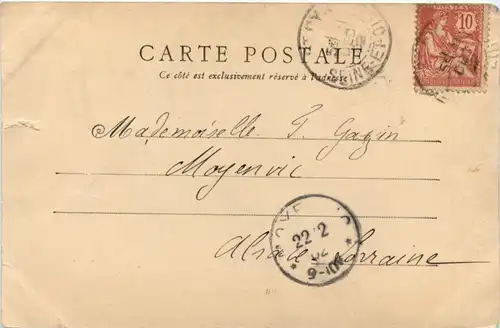 10
POSTES
CARTE POSTALE
Ce côté est exclusivement réservé à l'adresse
SEINE-ET-O
Mademoiselle
Moyenvic
22 2
02
9-10
Alsace Lorraine